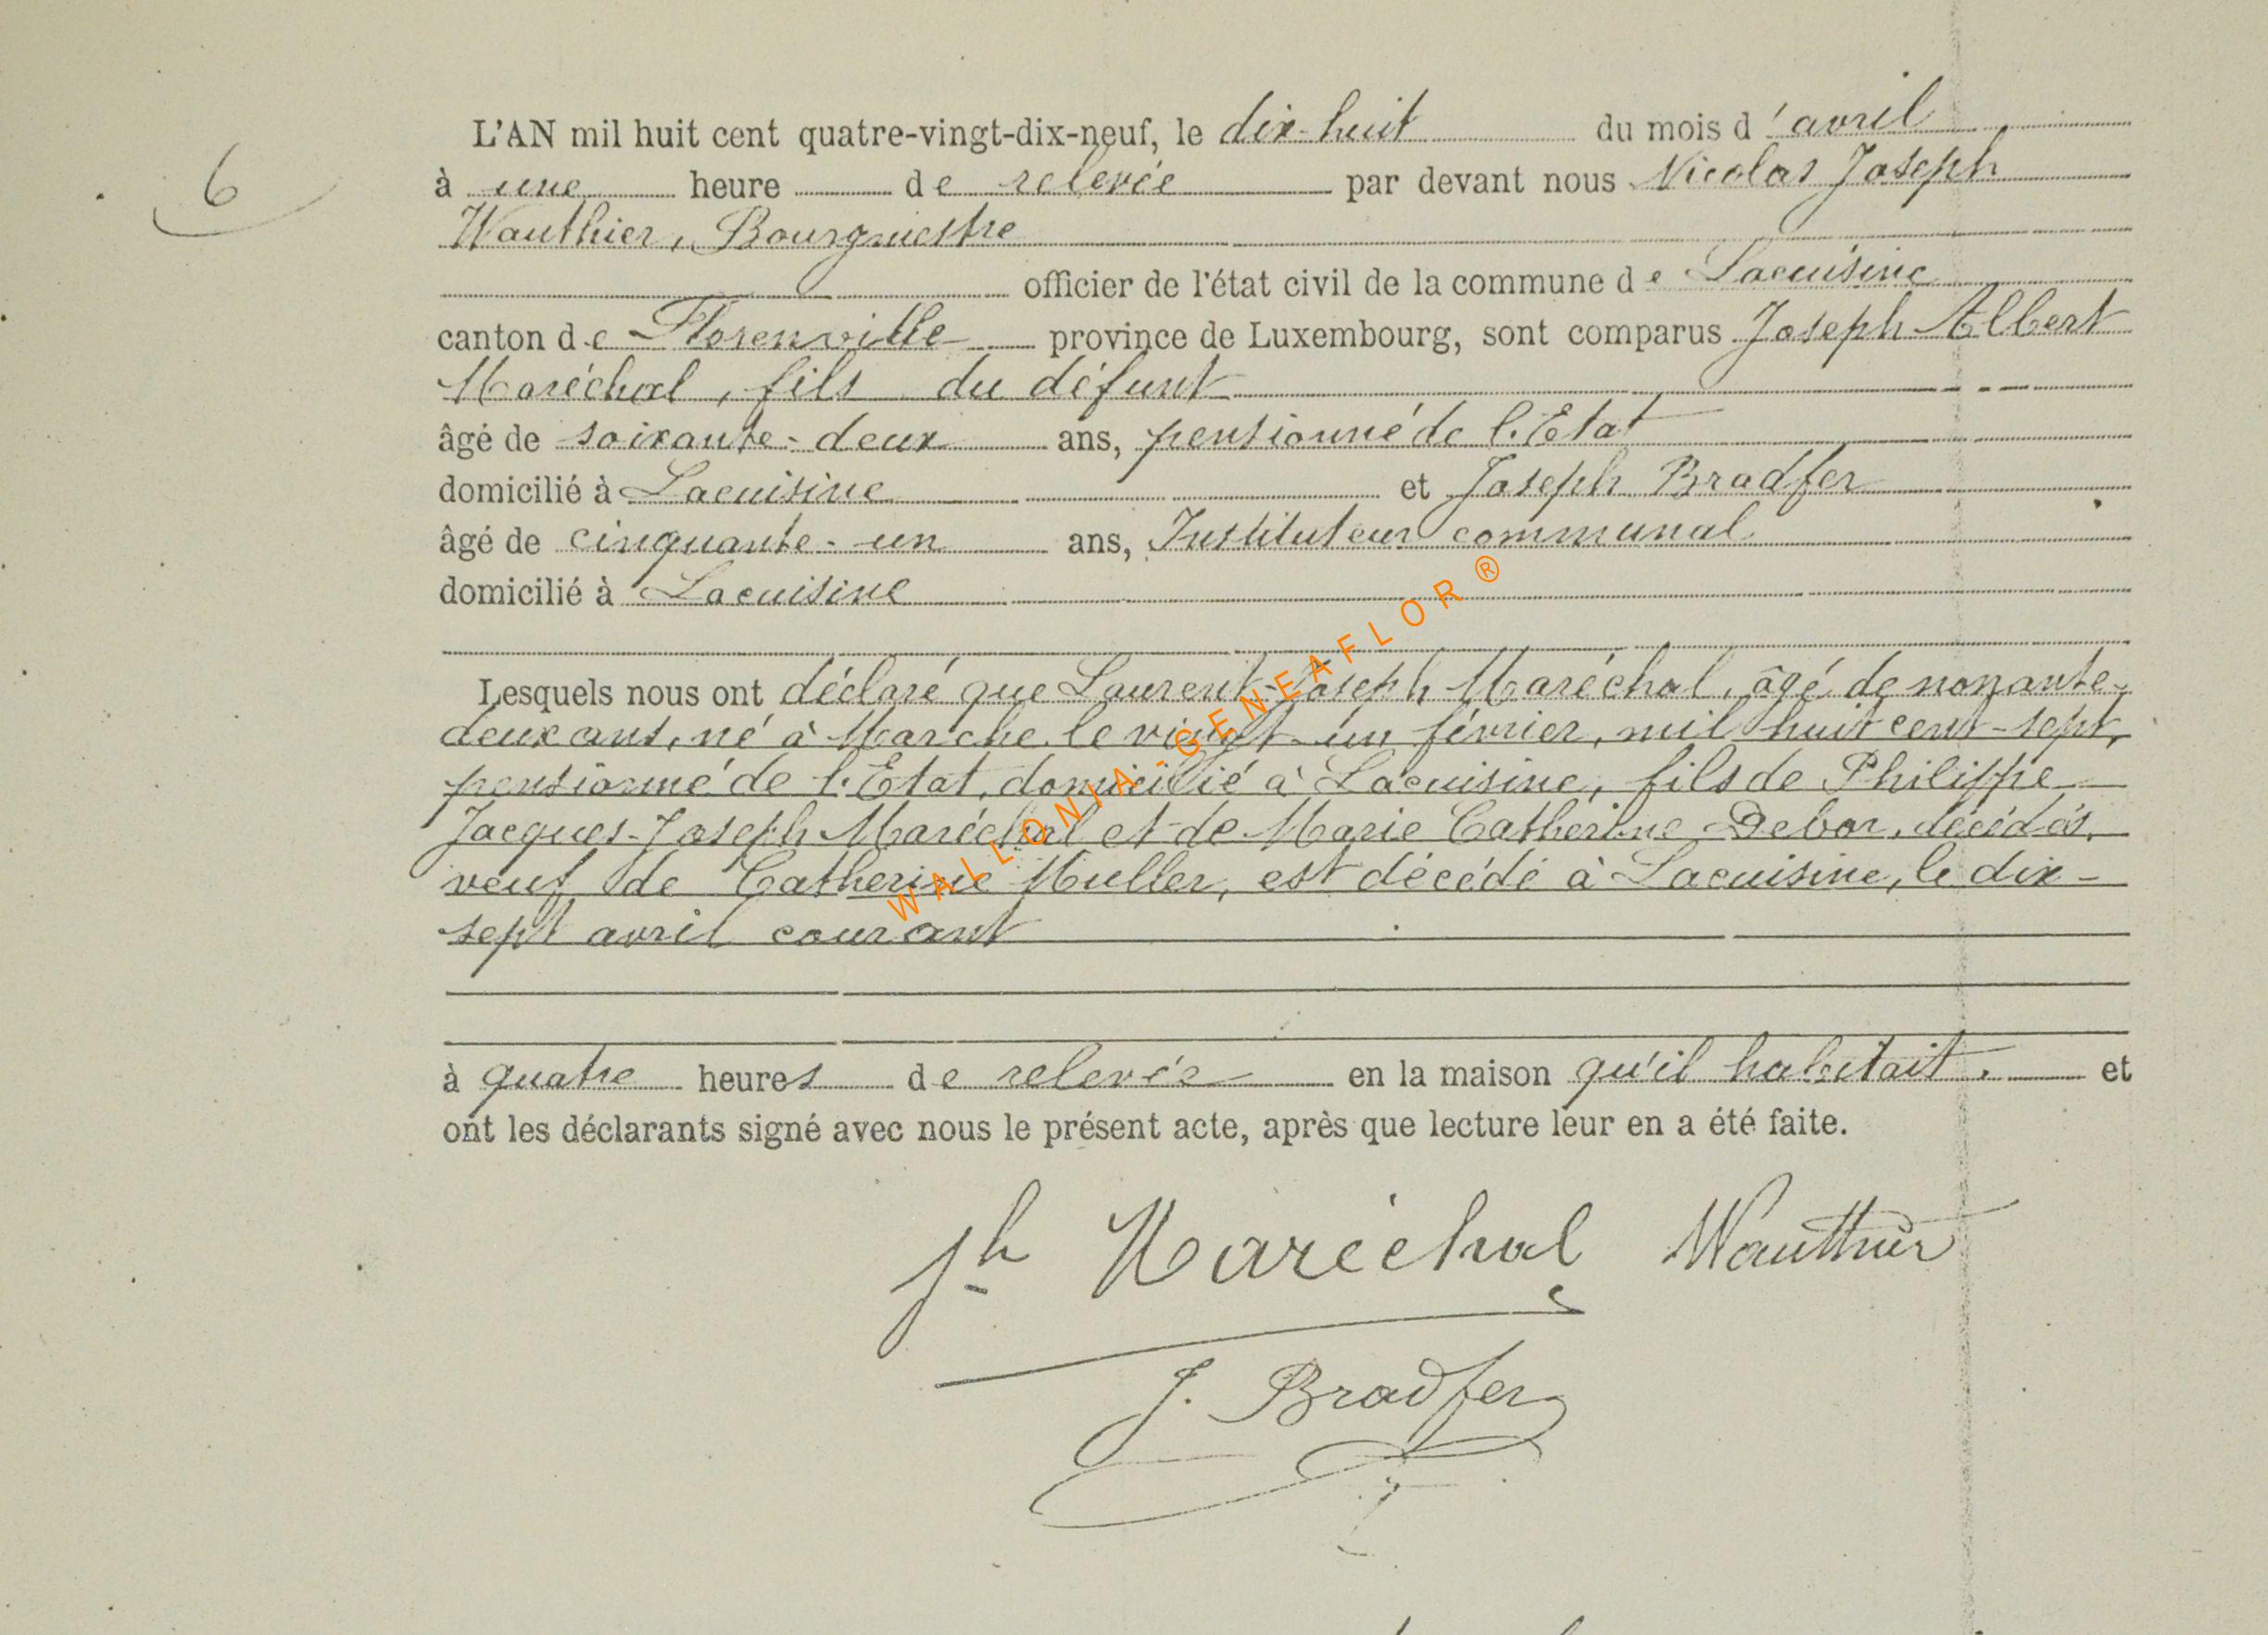 6
L'AN mil huit cent quatre-vingt-dix-neuf, le dix-huit du mois d'avril
à une heure de relevée par devant nous Nicolas Joseph
Wauthier, Bourgmestre
officier de l'état civil de la commune de Lacuisine
canton de Florenville province de Luxembourg, sont comparus Joseph Albert
Maréchal, fils du défunt
âgé de soixante-deux ans, pensionné de l'Etat
domicilié à Lacuisine et Joseph Bradfer
âgé de cinquante-un ans, Instituteur communal
domicilié à Lacuisine
Lesquels nous ont déclaré que Laurent-Joseph Maréchal, âgé de nonante-
deux ans, né à Marche le vingt-un février, mil huit cent-sept,
pensionné de l'Etat, domicilié à Lacuisine, fils de Philippe
Jacques-Joseph Maréchal et de Marie Catherine Debar, décédés,
veuf de Catherine Muller, est décédé à Lacuisine, le dix-
sept avril courant
à quatre heures de relevée en la maison qu'il habitait. et
ont les déclarants signé avec nous le présent acte, après que lecture leur en a été faite.
Jh Maréchal Wauthier
J. Bradfer
WALLONIA-GENEAFLOR®